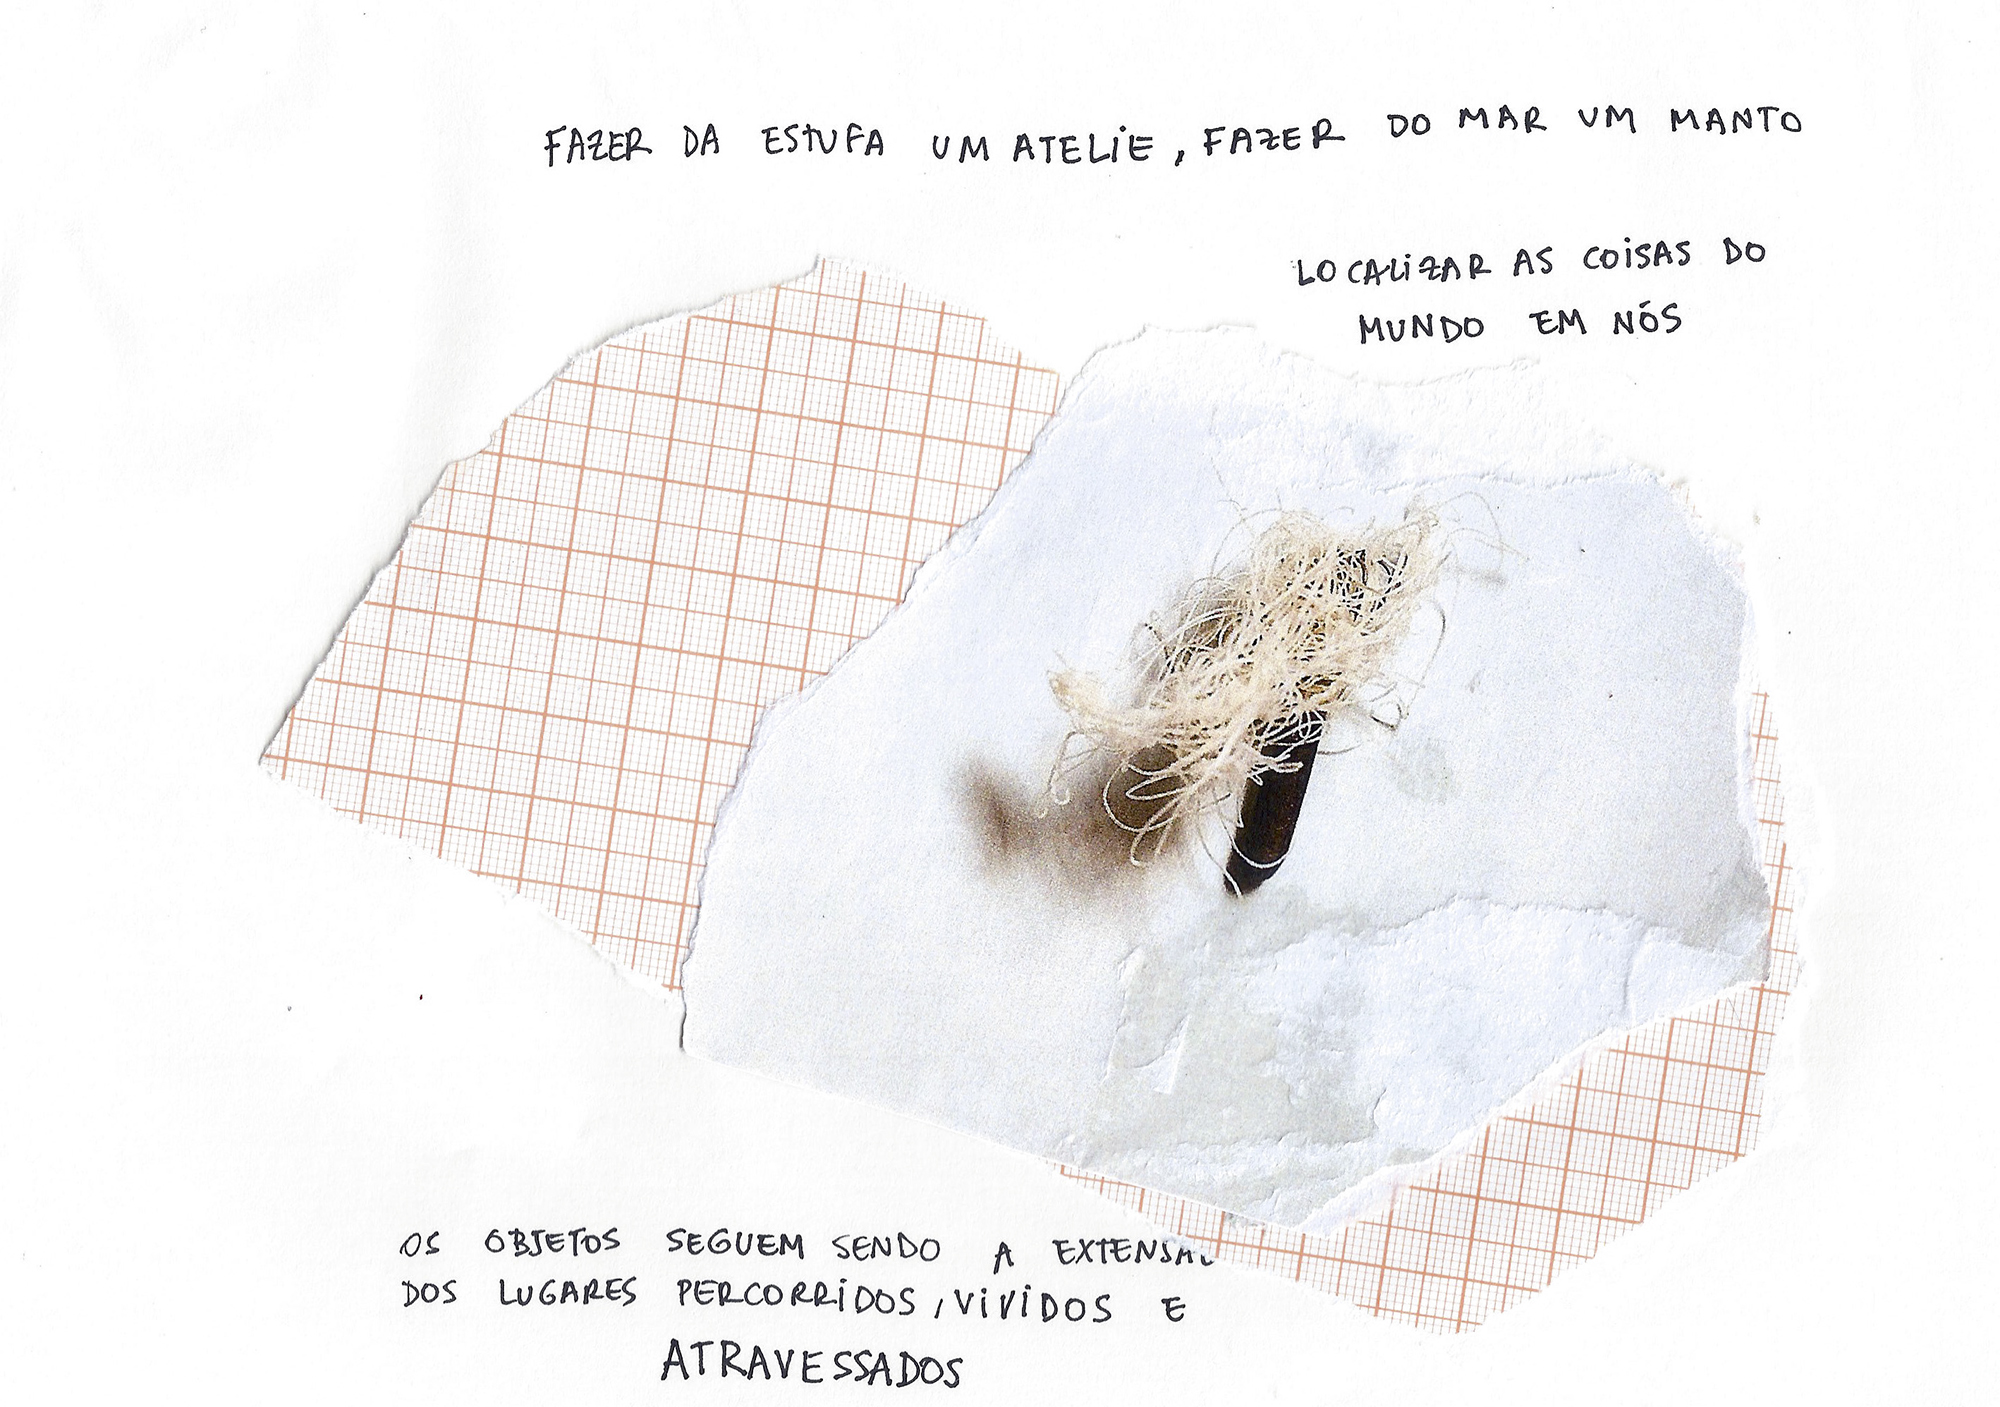 FAZER DA ESTUFA UM ATELIE, FAZER DO MAR UM MANTO
LOCALIZAR AS COISAS DO
MUNDO EM NÓS
OS OBJETOS SEGUEM SENDO A
DOS LUGARES PERCORRIDOS, VIVIDOS E
ATRAVESSADOS